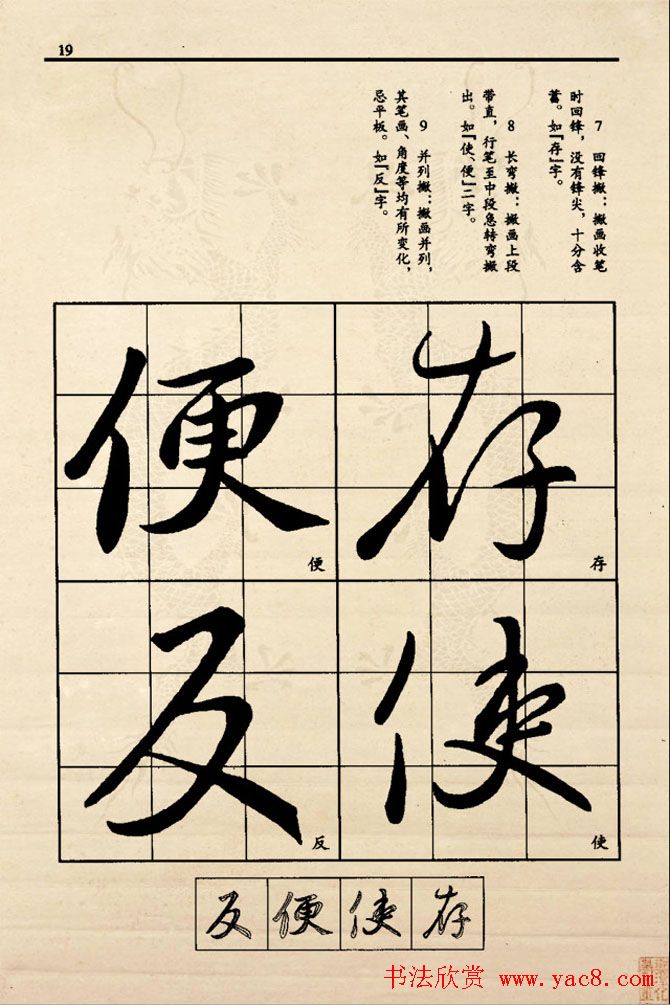 19
7 回锋撇：撇画收笔
时回锋，没有锋尖，十分含
蓄。如『存』字。
8 长弯撇：撇画上段
带直，行笔至中段急转弯撇
出。如『使、便』二字。
9 并列撇：撇画并列，
其笔画、角度等均有所变化，
忌平板。如『反』字。
存
存
使
使
便
便
反
反
反 便 使 存
书法欣赏 www.yac8.com